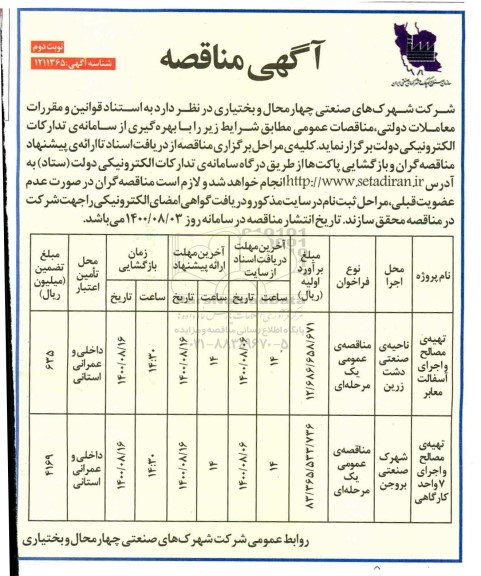 نوبت دوم
شناسه آگهی: ۱۲۱۱۳۶۵
آگهی مناقصه
شرکت شهرک‌های صنعتی چهارمحال و بختیاری در نظر دارد به استناد قوانین و مقررات
معاملات دولتی، مناقصات عمومی مطابق شرایط زیر را با بهره‌گیری از سامانه‌ی تدارکات
الکترونیکی دولت برگزار نماید. کلیه‌ی مراحل برگزاری مناقصه از دریافت اسناد تا ارائه‌ی پیشنهاد
مناقصه‌گران و بازگشایی پاکت‌ها از طریق درگاه سامانه‌ی تدارکات الکترونیکی دولت (ستاد) به
آدرس http://www.setadiran.ir انجام خواهد شد و لازم است مناقصه‌گران در صورت عدم
عضویت قبلی، مراحل ثبت‌نام در سایت مذکور و دریافت گواهی امضای الکترونیکی را جهت شرکت
در مناقصه محقق سازند. تاریخ انتشار مناقصه در سامانه روز ۱۴۰۰/۰۸/۰۳ می‌باشد.
نام پروژه | محل اجرا | نوع فراخوان | مبلغ برآورد اولیه (ریال) | آخرین مهلت دریافت اسناد از سایت | آخرین مهلت ارائه پیشنهاد | زمان بازگشایی | محل تأمین اعتبار | مبلغ تضمین (میلیون ریال)
ساعت | تاریخ | ساعت | تاریخ | ساعت | تاریخ
تهیه‌ی مصالح و اجرای آسفالت معابر | ناحیه‌ی صنعتی دشت زرین | مناقصه‌ی عمومی یک مرحله‌ای | ۱۲/۶۸۶/۶۵۸/۶۷۱ | ۱۴ | ۱۴۰۰/۰۸/۰۶ | ۱۴ | ۱۴۰۰/۰۸/۱۶ | ۱۴:۳۰ | ۱۴۰۰/۰۸/۱۶ | داخلی و عمرانی استانی | ۶۳۵
تهیه‌ی مصالح و اجرای ۷ واحد کارگاهی | شهرک صنعتی بروجن | مناقصه‌ی عمومی یک مرحله‌ای | ۸۳/۳۶۵/۵۳۳/۷۳۶ | ۱۴ | ۱۴۰۰/۰۸/۰۶ | ۱۴ | ۱۴۰۰/۰۸/۱۶ | ۱۴:۳۰ | ۱۴۰۰/۰۸/۱۶ | داخلی و عمرانی استانی | ۴۱۶۹
پایگاه اطلاع رسانی مناقصه و مزایده
۰۲۱-۸۸۳۴۹۶۷۰-۵
روابط عمومی شرکت شهرک‌های صنعتی چهارمحال و بختیاری